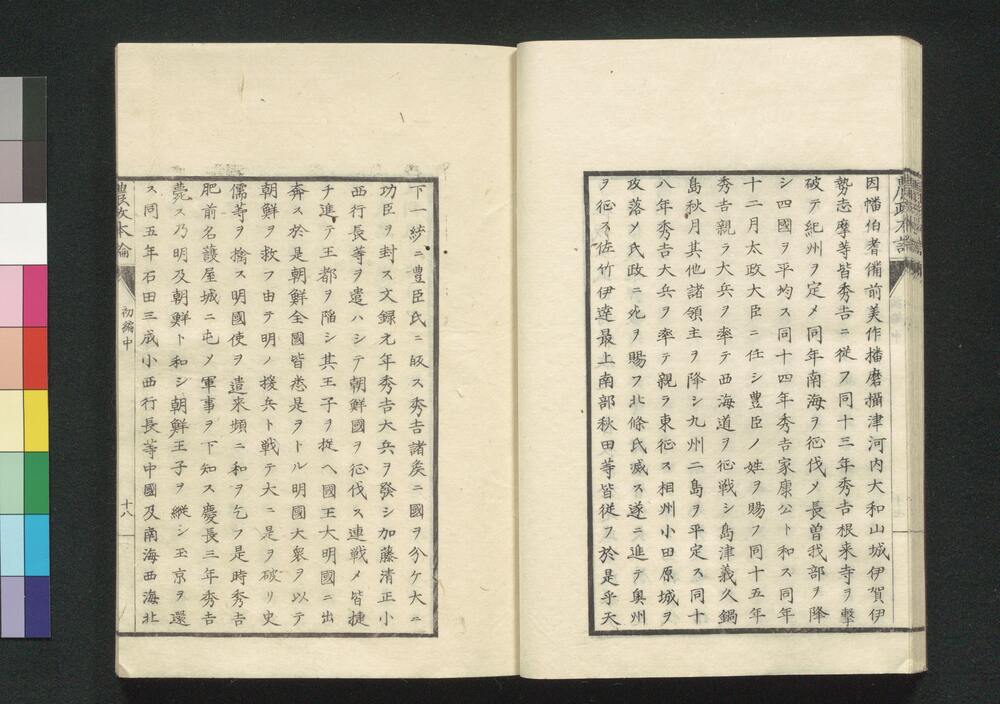 因幡伯耆備前美作播磨攝津河内大和山城伊賀伊
勢志摩等皆秀吉ニ從フ同十三年秀吉根来寺ヲ擊
破テ紀州ヲ定メ同年南海ヲ征伐メ長曽我部ヲ降
シ四國ヲ平均ス同十四年秀吉家康公ト和ス同年
十二月太政大臣ニ任シ豊臣ノ姓ヲ賜フ同十五年
秀吉親ラ大兵ヲ率テ西海道ヲ征戦シ島津義久鍋
島秋月其他諸領主ヲ降シ九州二島ヲ平定ス同十
八年秀吉大兵ヲ率テ親ラ東征ス相州小田原城ヲ
攻落メ氏政ニ死ヲ賜フ北條氏滅ス遂ニ進テ奥州
ヲ征ス佐竹伊達最上南部秋田等皆從フ於是乎天
下一統ニ豊臣氏ニ皈ス秀吉諸矦ニ國ヲ分ケ大ニ
功臣ヲ封ス文録元年秀吉大兵ヲ發シ加藤清正小
西行長等ヲ遣ハシテ朝鮮國ヲ征伐ス連戦メ皆捷
チ進テ王都ヲ陥シ其王子ヲ捉ヘ國王大明國ニ出
奔ス於是朝鮮全國皆悉是ヲトル明國大衆ヲ以テ
朝鮮ヲ救フ由テ明ノ援兵ト戦テ大ニ是ヲ破リ史
儒等ヲ擒ス明國使ヲ遣来頻ニ和ヲ乞フ是時秀吉
肥前名護屋城ニ屯メ軍事ヲ下知ス慶長三年秀吉
薨ス乃明及朝鮮ト和シ朝鮮王子ヲ縦シ玉京ヲ還
ス同五年石田三成小西行長等中國及南海西海北
農政本論
初編中
十八